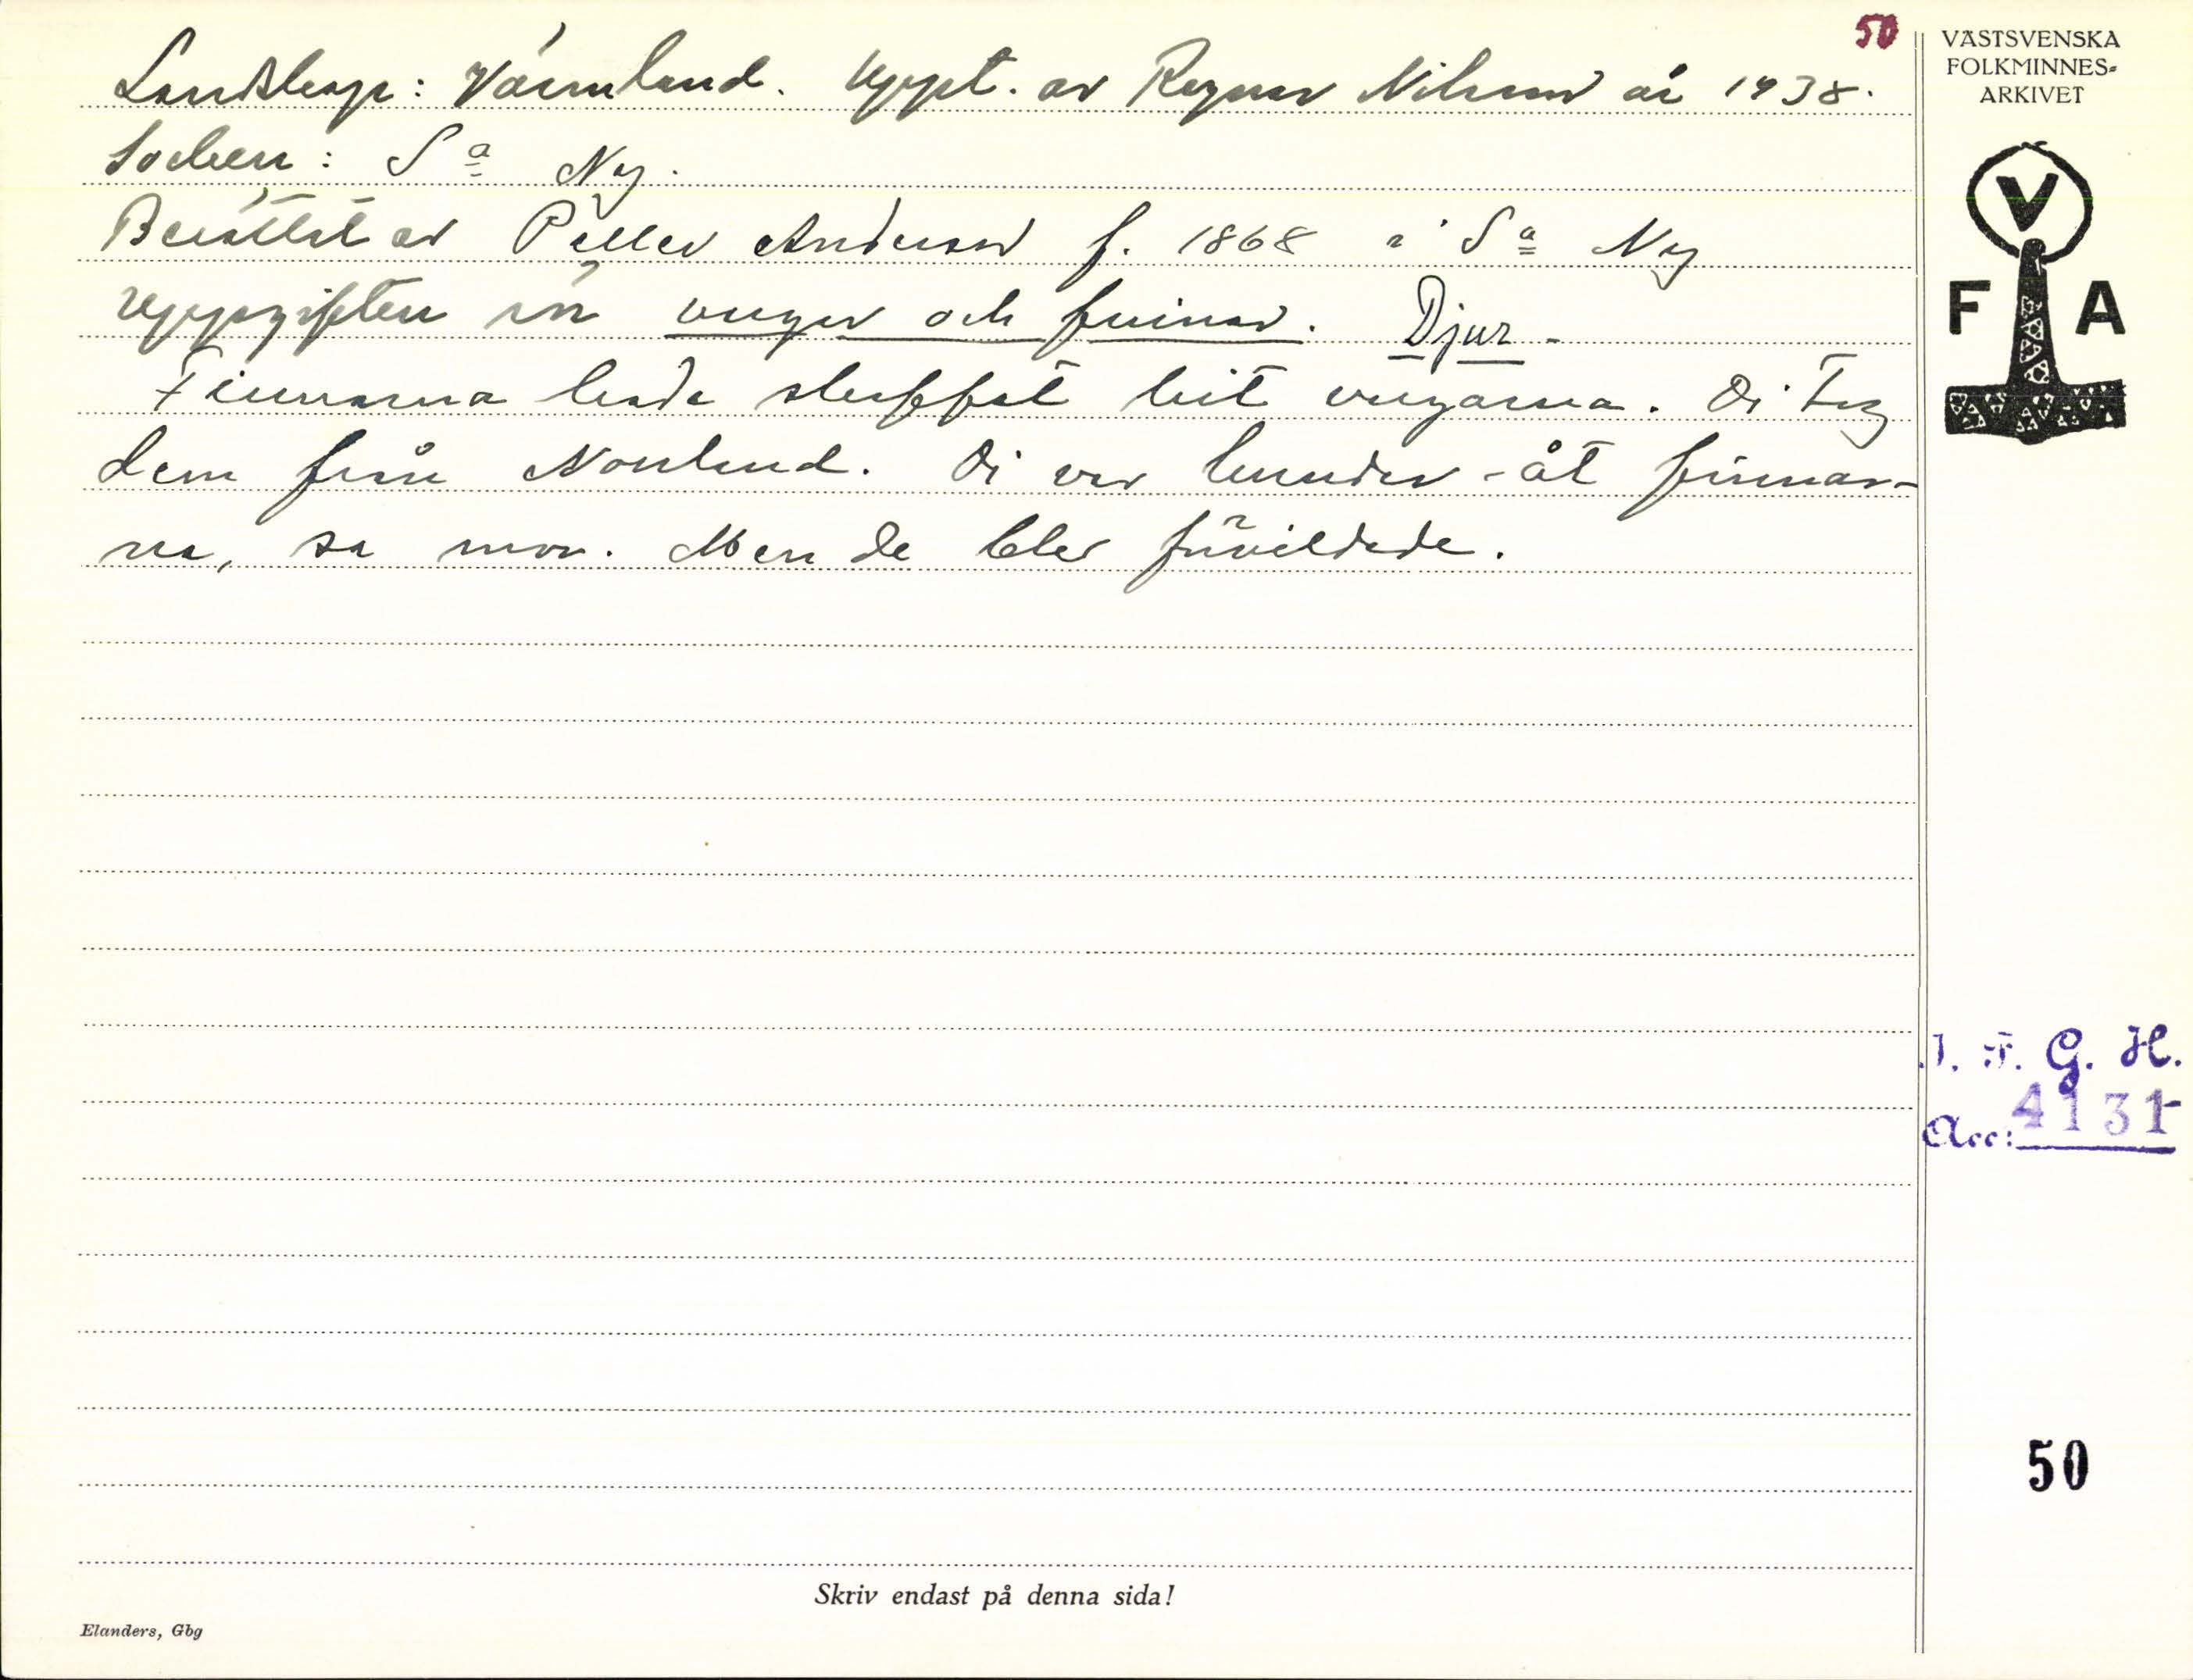 50
Landskap: Värmland. Uppt. av Ragnar Nilsson år 1938.
Socken: Sa Ny.
Berättat av Petter Anderson f. 1868 i Sa Ny
Uppgiften rör vargar och finnar. Djur.
Finnarna hade skaffat hit vargarna. Di tog
dem från Norrland. Di var hundar åt finnar-
na, sa mor. Men de blev förvildade.
Skriv endast på denna sida!
Elanders, Gbg
VÄSTSVENSKA
FOLKMINNES-
ARKIVET
V
F A
I. F. G. H.
Acc: 4131
50